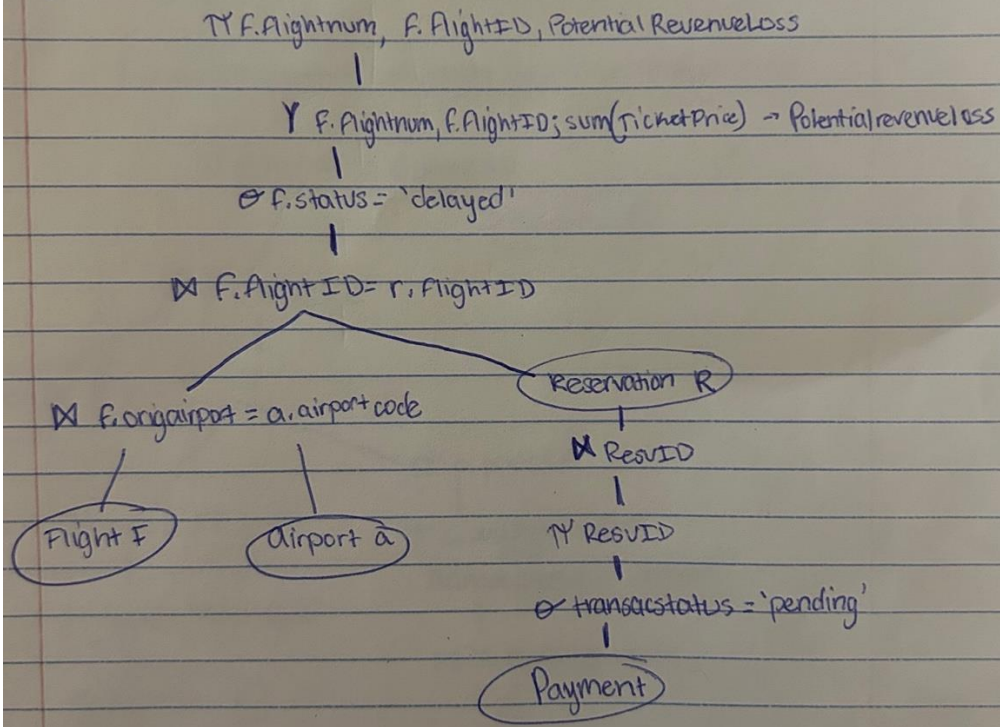 π f.flightnum, f.flightID, PotentialRevenueLoss
γ f.flightnum, f.flightID; sum(TicketPrice) → Potentialrevenueloss
σ f.status = 'delayed'
⋈ f.flightID = r.flightID
Reservation R
⋈ f.origairport = a.airportcode
⋈ ResvID
Flight F
airport a
π ResvID
σ transacstatus = 'pending'
Payment